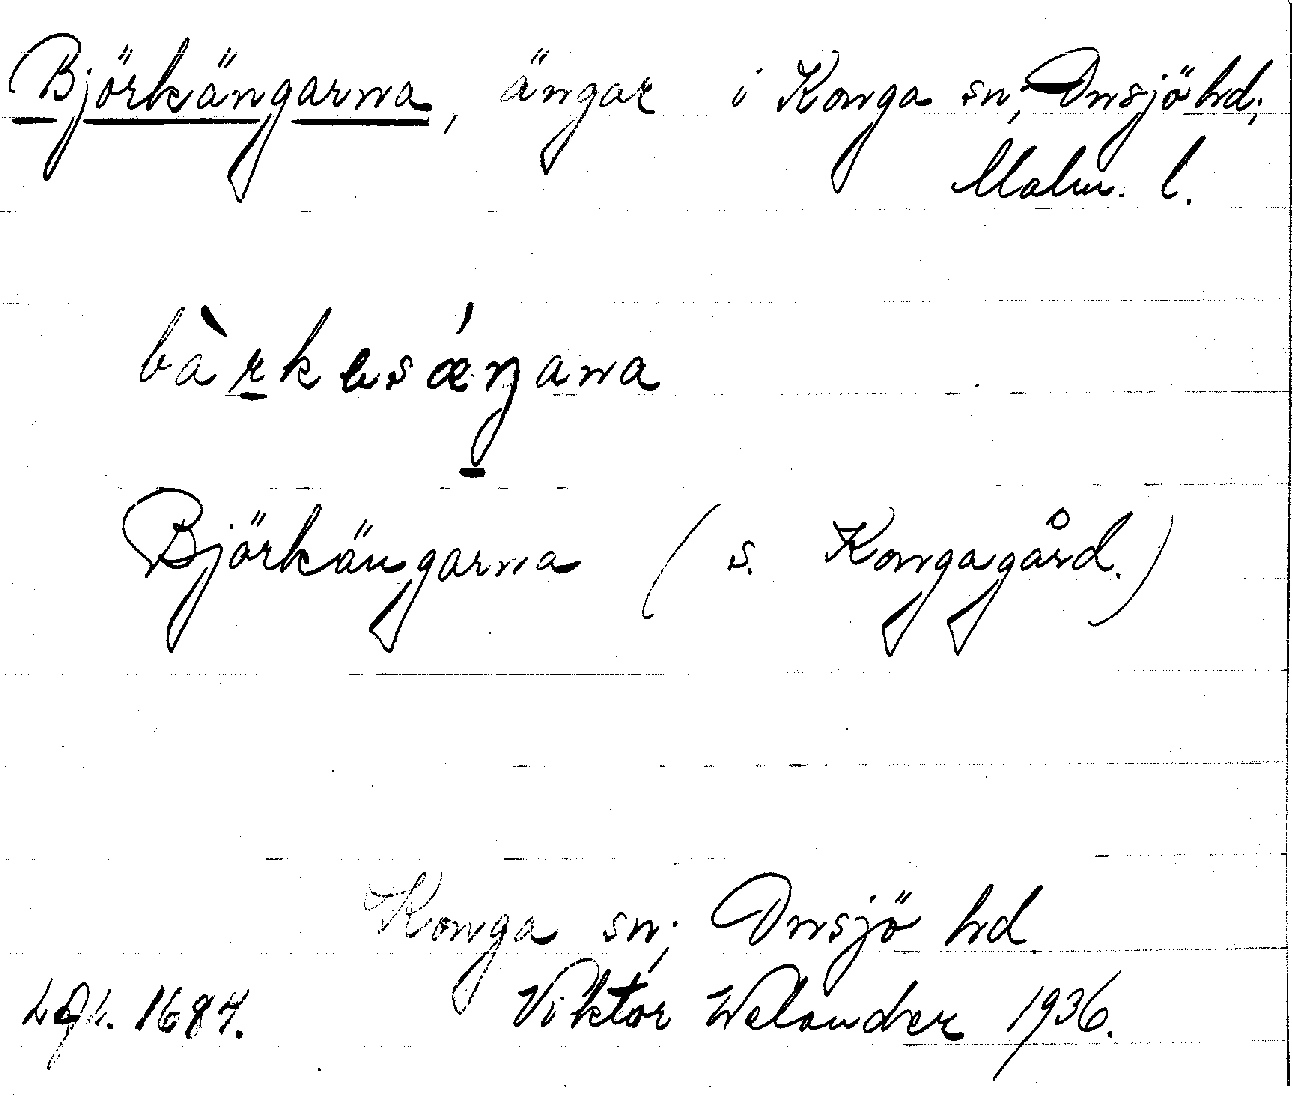 Björkängarna, ängar i Konga sn; Onsjö hd;
Malm. l.
bàrkesǽŋana
Björkängarna (s. Kongagård.)
Konga sn; Onsjö hd
1684. Viktor Welander 1936.